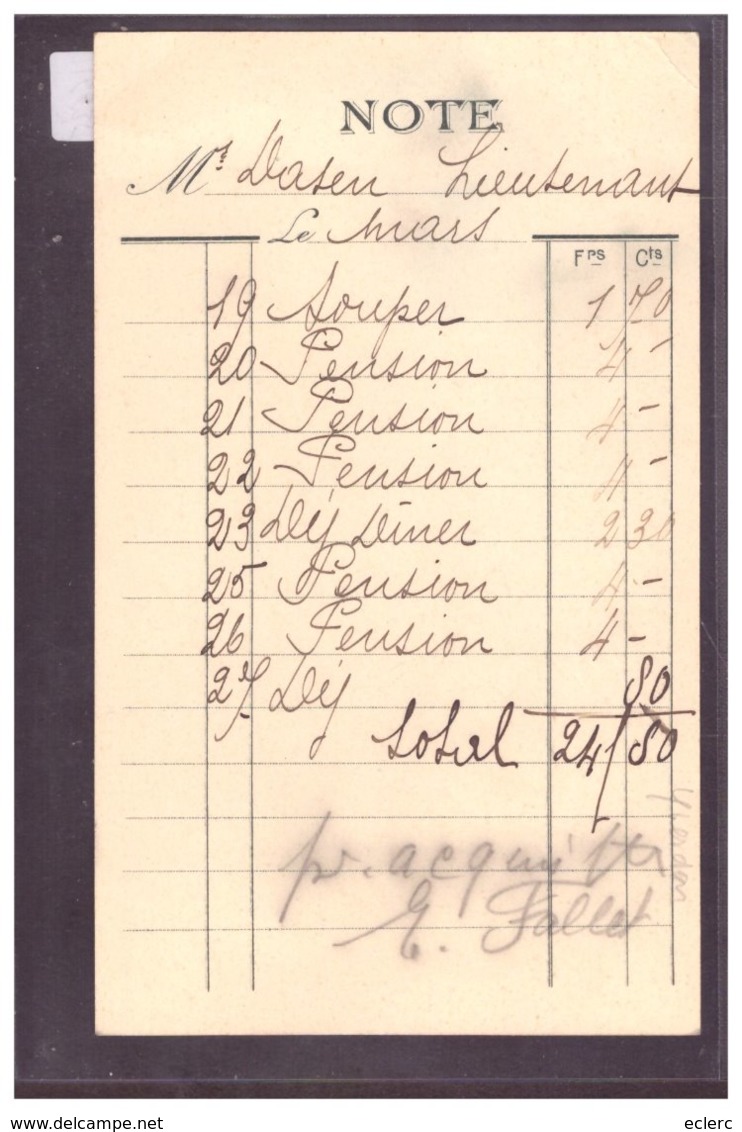 NOTE
Mr Dasen Lieutenant
Le Mars
Frs Cts
19 Souper 1 70
20 Pension 4 -
21 Pension 4 -
22 Pension 4 -
23 Déj Dîner 2 30
25 Pension 4 -
26 Pension 4 -
27 Déj 80
total 24 80
pr. acquit
E. Fallet
Yverdon
www.delcampe.net
eclerc